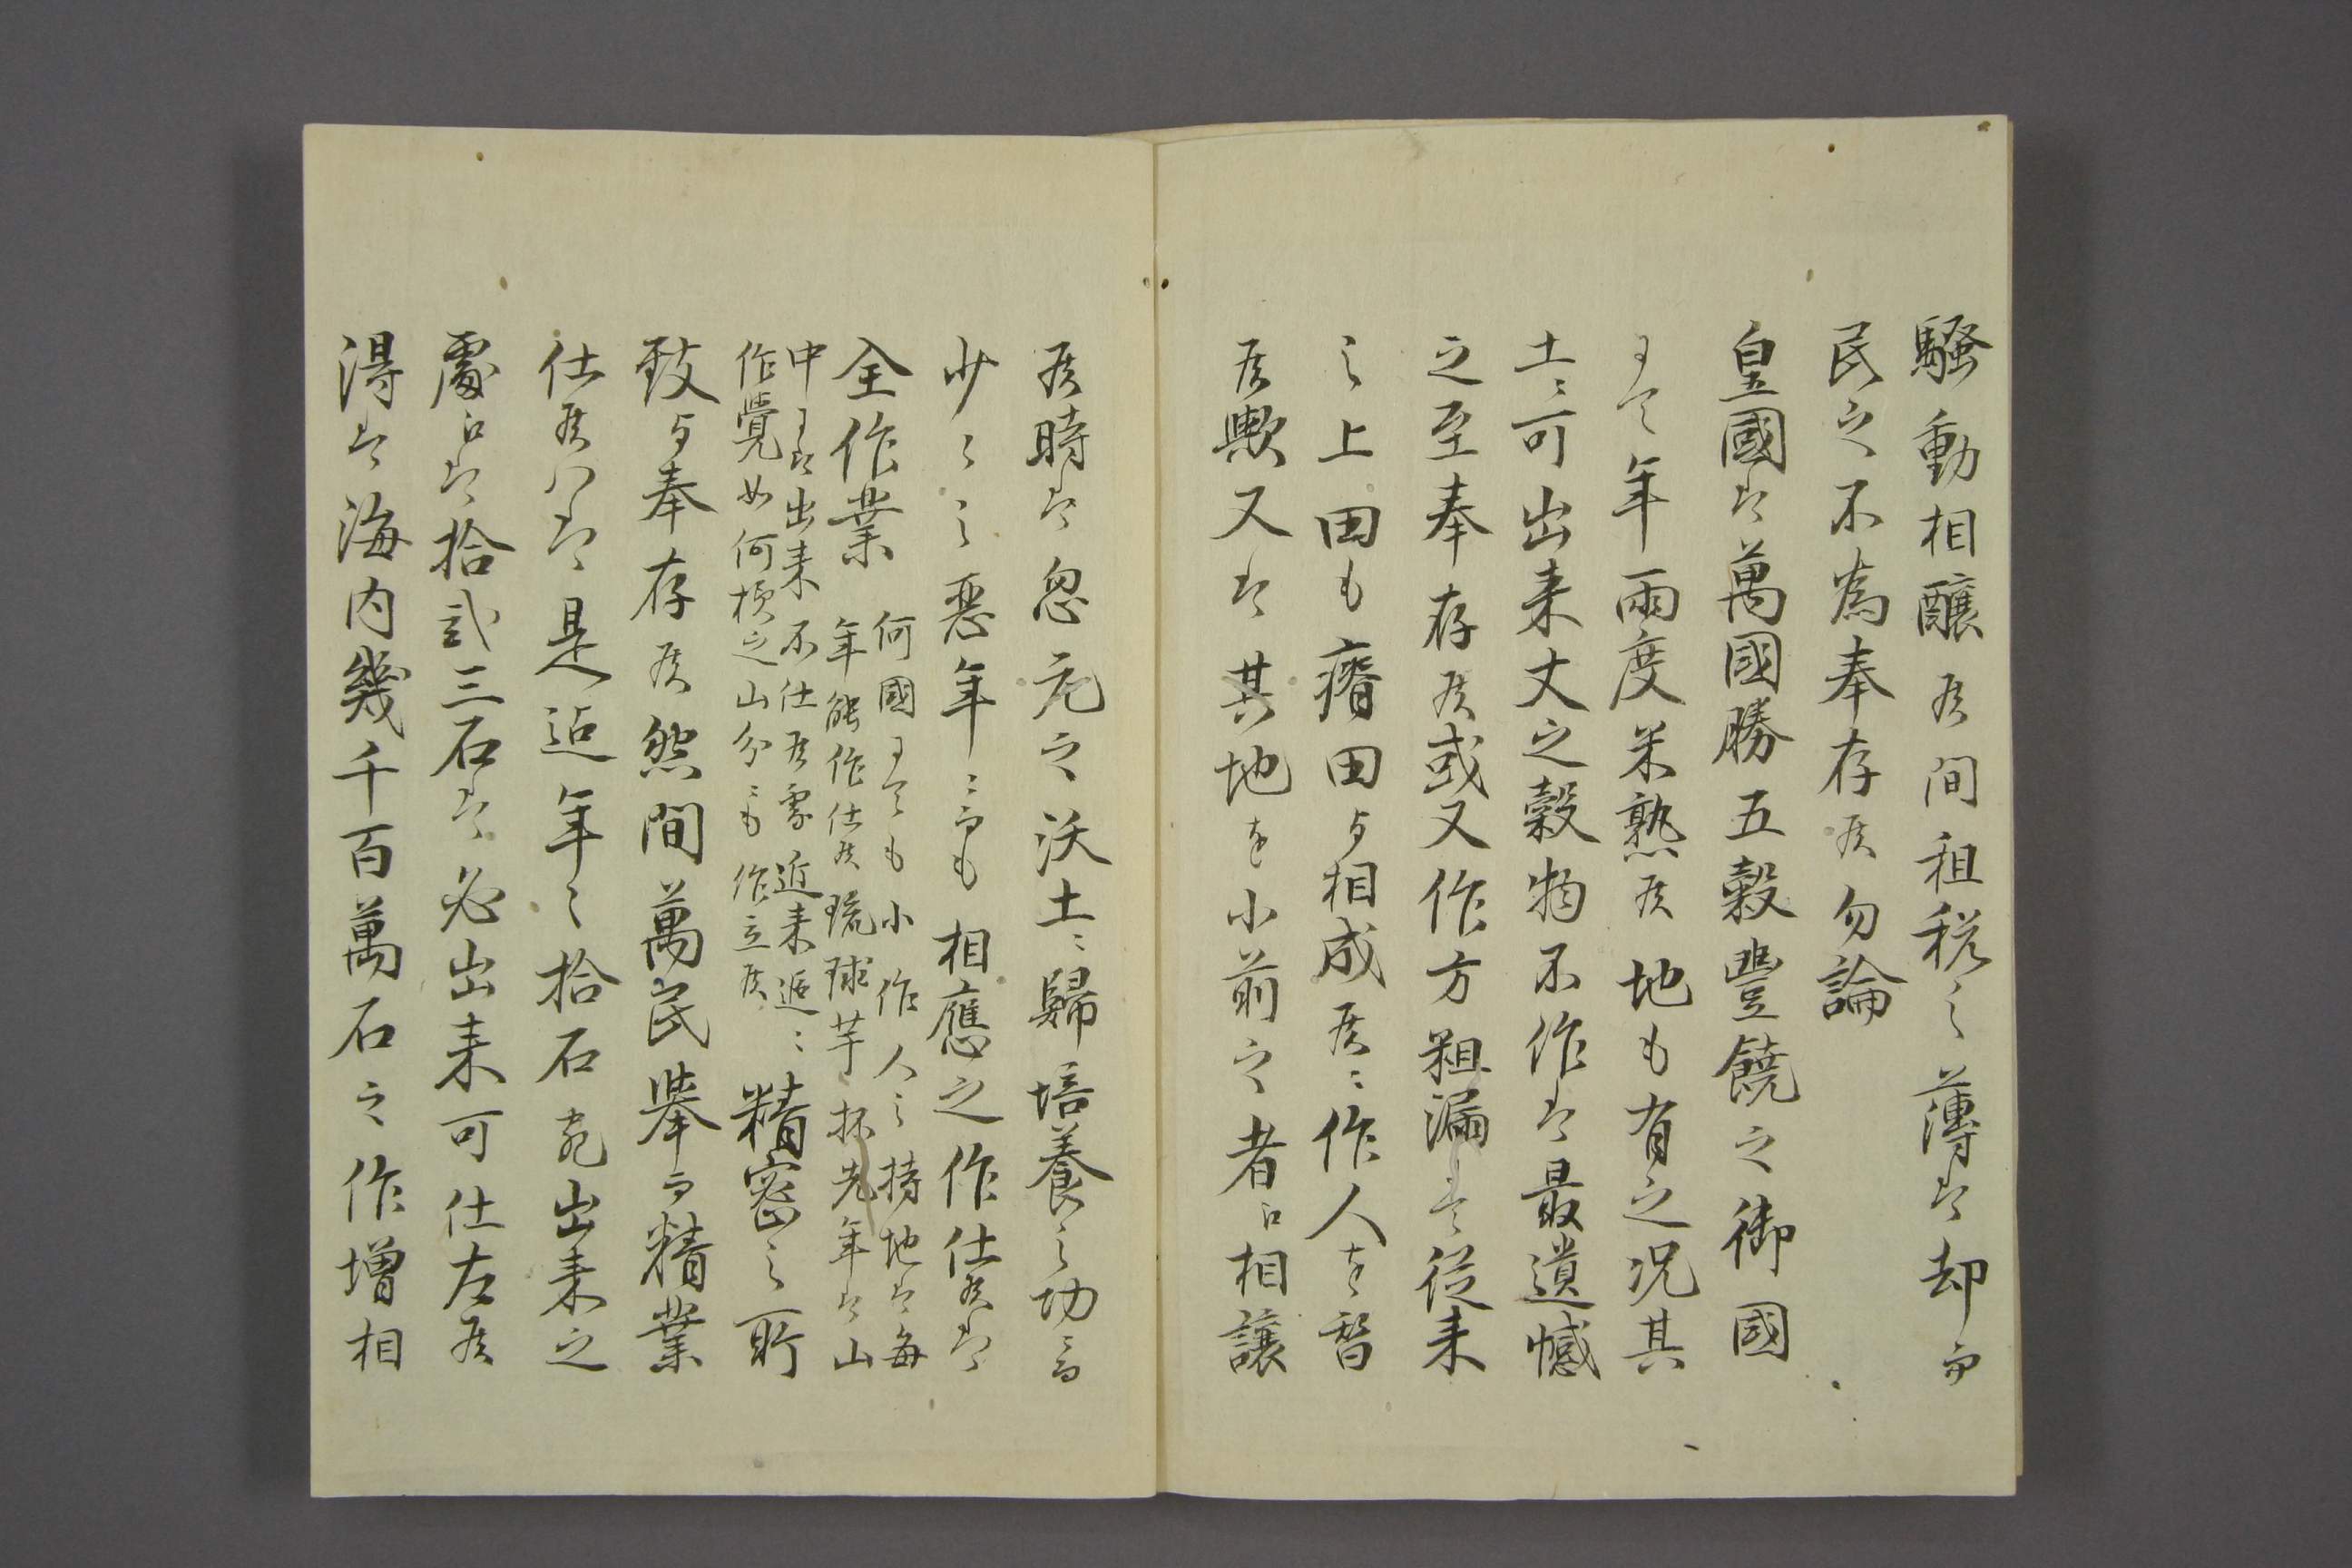 騒動相醸候間租税之薄ハ却而
民之不為奉存候勿論
皇國ハ萬國勝五穀豐饒之御國
ニて年兩度米熟候地も有之况其
土ニ可出来丈之穀物不作ハ最遺憾
之至奉存候或又作方粗漏ニて従来
之上田も瘠田与相成候ニ作人を替
候歟又ハ其地を小前之者ニ相譲
候時ハ忽元之沃土ニ歸培養之功ニ而
少々之惡年ニ而も相應之作仕候ハ
全作業
何國ニても小作人之持地ハ毎
年能作仕候琉球芋抔先年ハ山
中ニハ出来不仕候處近来追々
作覺如何様之山分ニも作立候
精密之所
致与奉存候然間萬民擧而精業
仕候ハヽ是迄年々拾石宛出来之
處ニハ拾貳三石ハ必出来可仕左候
得ハ海内幾千百萬石之作増相